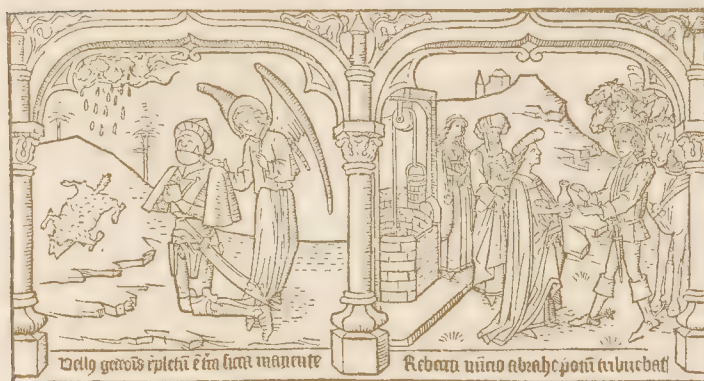 Vellꝰ gedeōis rēpletū ē t̄ra sicca manente
Rebecca nūcio abrahe potū tribuebat